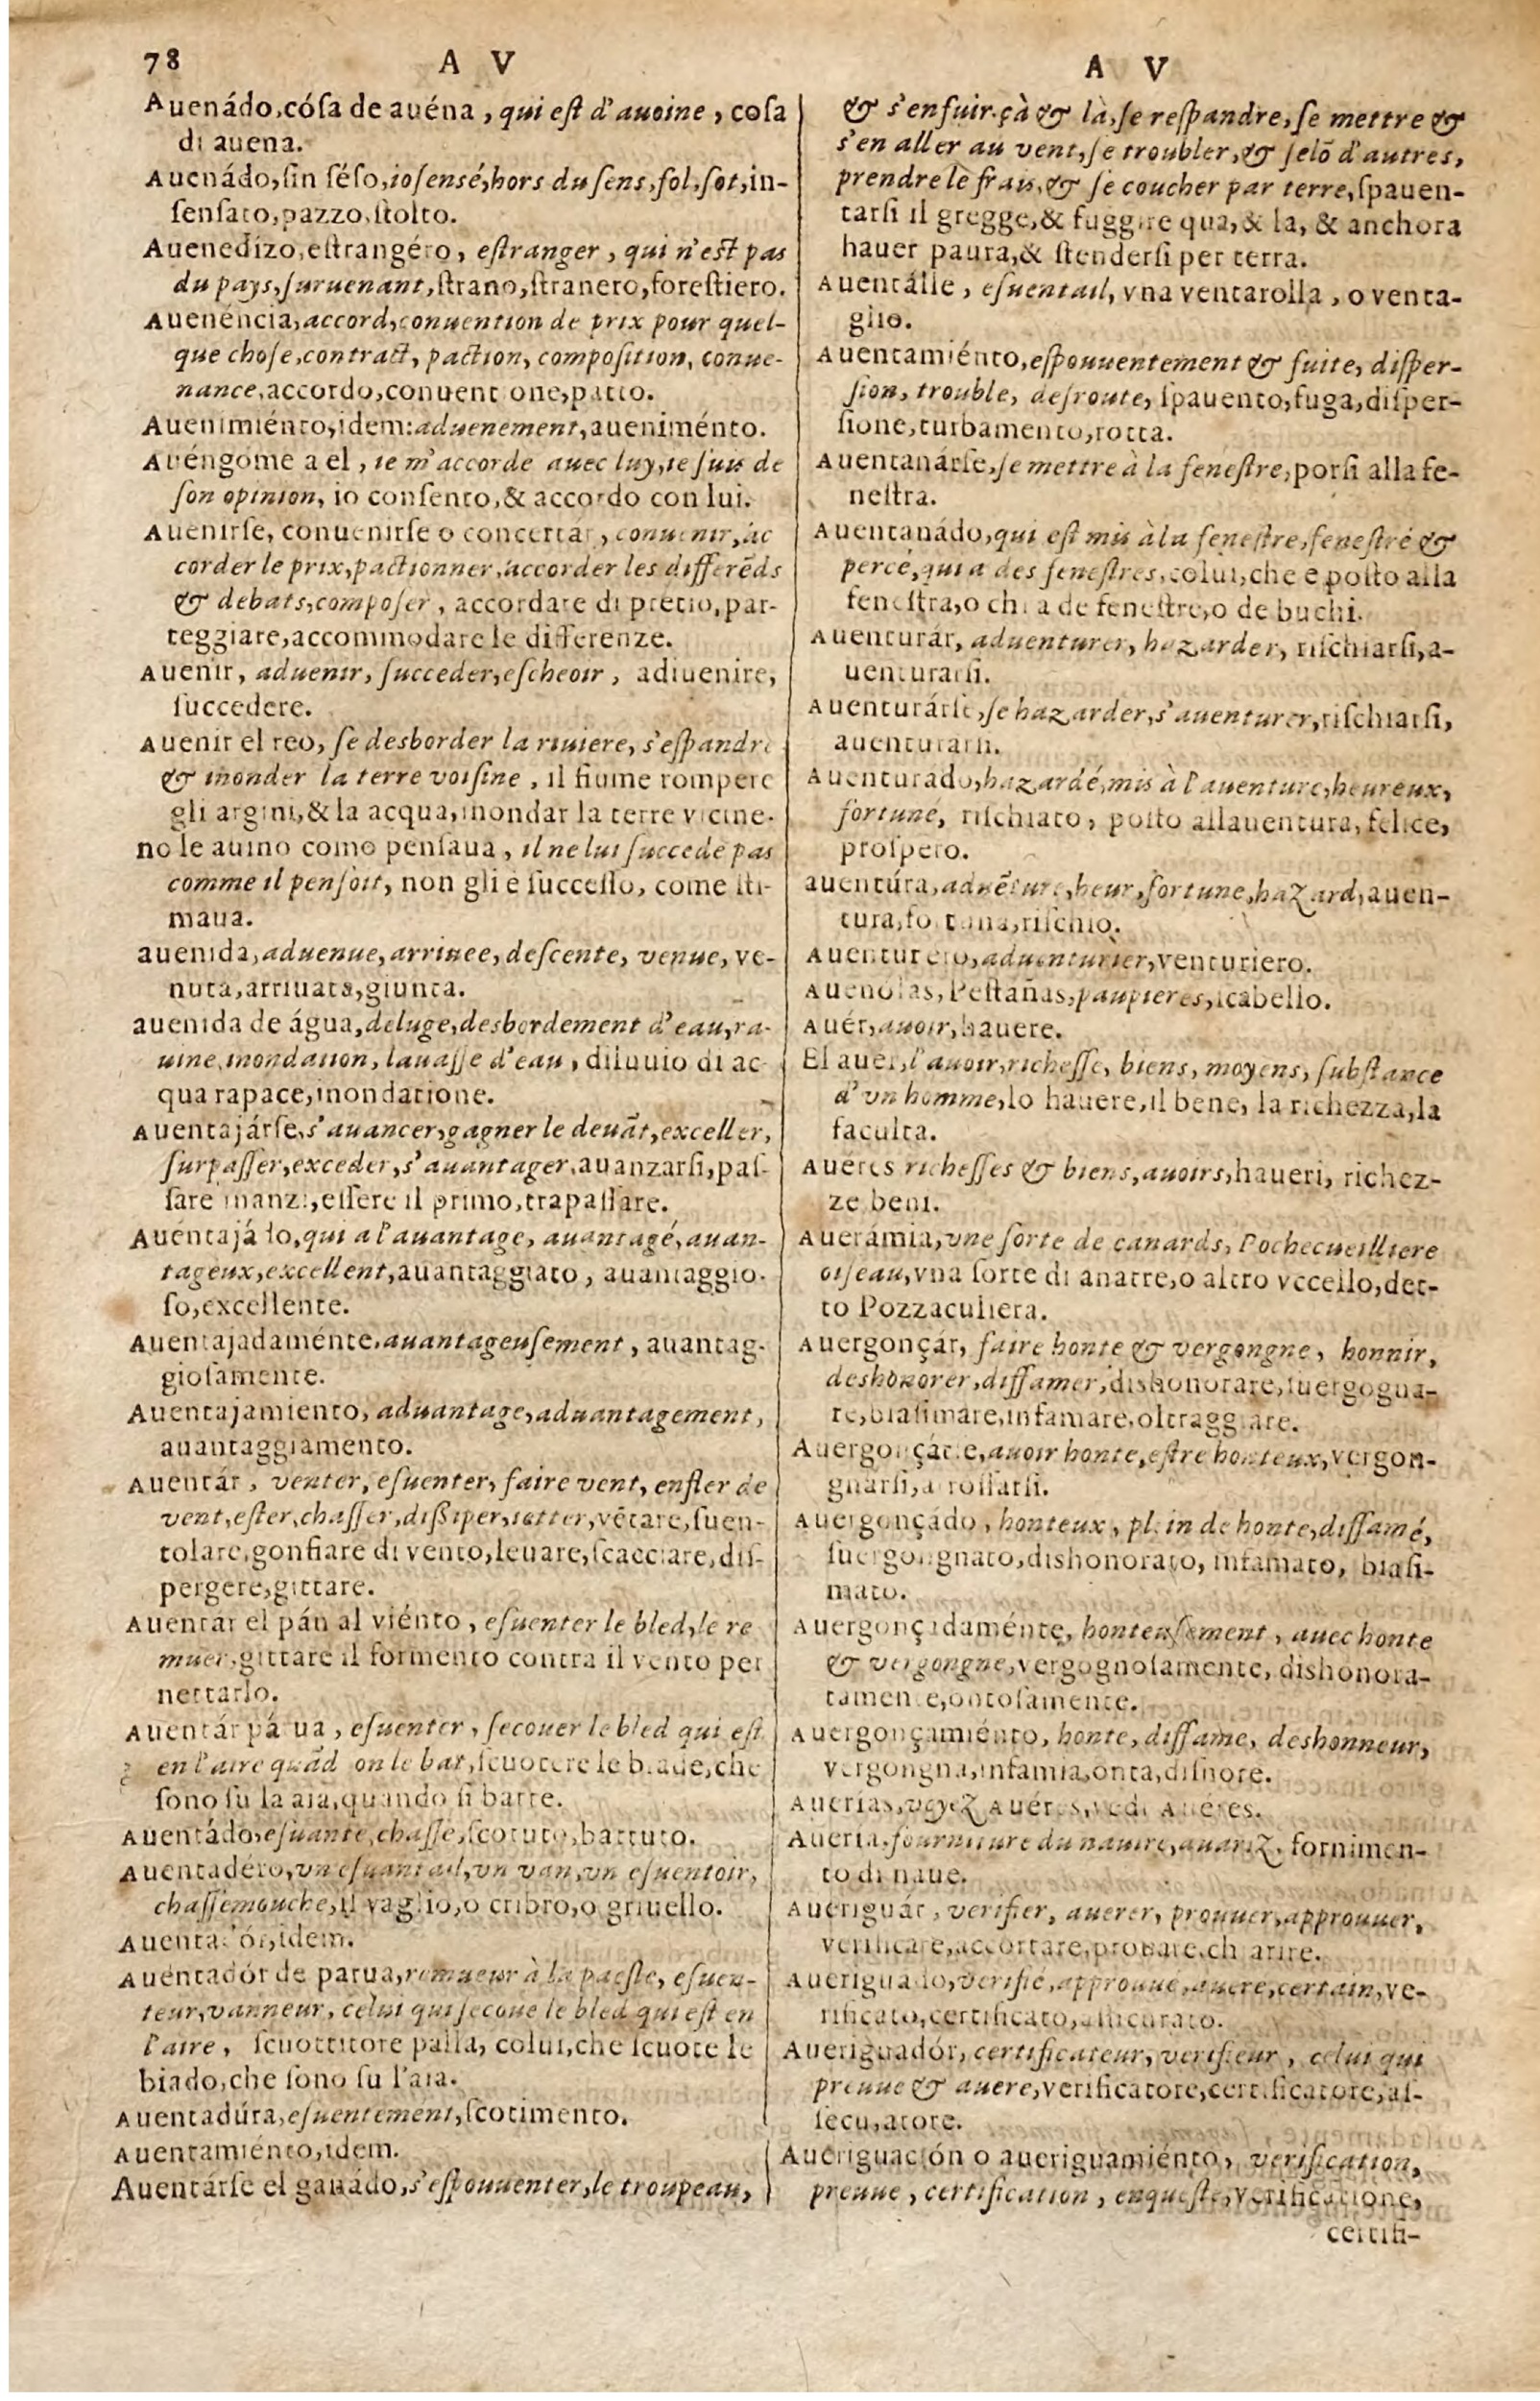 78
A V
Auenádo,cósa de auéna, qui est d'auoine, cosa
di auena.
Auenádo,sin séso,iosensé,hors du sens,fol,sot,in-
sensato,pazzo,stolto.
Auenedízo,estrangéro, estranger, qui n'est pas
du pays,suruenant,strano,stranero,forestiero.
Auenéncia,accord,conuention de prix pour quel-
que chose,contract, paction, composition, conue-
nance,accordo,conuentione,patto.
Auenimiénto,idem:aduenement,aueniménto.
Auéngome a el, ie m'accorde auec luy,ie suis de
son opinion, io consento,& accordo con lui.
Auenirse, conuenirse o concertar, conuenir,ac
corder le prix,pactionner,accorder les differẽds
& debats,composer, accordare di precio,par-
teggiare,accommodare le differenze.
Auenir, aduenir, succeder,escheoir, adiuenire,
succedere.
Auenir el reo, se desborder la riuiere, s'espandre
& inonder la terre voisine, il fiume rompere
gli argini,& la acqua,inondar la terre vicine.
no le auino como pensaua, il ne lui succede pas
comme il pensoit, non gli è successo, come sti-
maua.
auenida,aduenue,arriuee,descente, venue, ve-
nuta,arriuata,giunta.
auenida de água,deluge,desbordement d'eau,ra-
uine,inondation, lauasse d'eau, diluuio di ac
qua rapace,inondatione.
Auentajárse,s'auancer,gagner le deuãt,exceller,
surpasser,exceder,s'auantager,auanzarsi,pas-
sare inanzi,essere il primo,trapassare.
Auentajádo,qui a l'auantage, auantagé,auan-
tageux,excellent,auantaggiato, auantaggio-
so,excellente.
Auentajadaménte,auantageusement, auantag-
giosamente.
Auentajamiento, aduantage,aduantagement,
auantaggiamento.
Auentár, venter, esuenter, faire vent, enfler de
vent,ester,chasser,dissiper,ietter,vẽtare,suen-
tolare,gonfiare di vento,leuare,scacciare,dis-
pergere,gittare.
Auentar el pán al viénto, esuenter le bled,le re
muer,gittare il formento contra il vento per
nettarlo.
Auentár páua, esuenter, secouer le bled qui est
en l'aire quãd on le bat,scuotere le biade,che
sono su la aia,quando si batte.
Auentádo,esuanté,chassé,scotuto,battuto.
Auentadéro,vn esuantail,vn van,vn esuentoir,
chassemouche,il vaglio,o cribro,o griuello.
Auentadór,idem.
Auentadór de parua,remueur à la paesle, esuen-
teur,vanneur, celui qui secoue le bled qui est en
l'aire, scuottitore palla, colui,che scuote le
biado,che sono su l'aia.
Auentadúra,esuentement,scotimento.
Auentamiénto,idem.
Auentárse el ganádo,s'espouuenter,le troupeau,
A V
& s'enfuir çà & là,se respandre,se mettre &
s'en aller au vent,se troubler,& selõ d'autres,
prendre le frais,& se coucher par terre,spauen-
tarsi il gregge,& fuggire qua,& la, & anchora
hauer paura,& stendersi per terra.
Auentálle, esuentail, vna ventarolla, o venta-
glio.
Auentamiénto,espouuentement & fuite, disper-
sion, trouble, desroute, spauento,fuga,disper-
sione,turbamento,rotta.
Auentanárse,se mettre à la fenestre,porsi alla fe-
nestra.
Auentanádo,qui est mis à la fenestre,fenestré &
percé,qui a des fenestres,colui,che è posto alla
fenestra,o chi a de fenestre,o de buchi.
Auenturár, aduenturer, hazarder, rischiarsi,a-
uenturarsi.
Auenturárse,se hazarder,s'auenturer,rischiarsi,
auenturarsi.
Auenturado,hazardé,mis à l'auenture,heureux,
fortuné, rischiato, posto allauentura, felice,
prospero.
auentúra,aduẽture,heur,fortune,hazard,auen-
tura,fortuna,rischio.
Auenturero,aduenturier,venturiero.
Auenolas, Pestañas,paupieres,icabello.
Auér,auoir,hauere.
El auer,l'auoir,richesse, biens, moyens, substance
d'vn homme,lo hauere,il bene, la richezza,la
faculta.
Auéres richesses & biens,auoirs,haueri, richez-
ze beni.
Auerámia,vne sorte de canards, Pochecueilliere
oiseau,vna sorte di anatre,o altro vccello,det-
to Pozzacuhera.
Auergonçár, faire honte & vergongne, honnir,
deshonorer,diffamer,dishonorare,suergogua-
re,biasimare,infamare,oltraggiare.
Auergonçárse,auoir honte,estre honteux,vergon-
gnarsi,arossarsi.
Auergonçádo, honteux, plein de honte,diffamé,
suergongnato,dishonorato, infamato, biasi-
mato.
Auergonçadaménte, honteusement, auec honte
& vergongne,vergognosamente, dishonora-
tamente,ontosamente.
Auergonçamiénto, honte, diffame, deshonneur,
vergongna,infamia,onta,disnore.
Auerías,voyez Auéres,vedi Auéres.
Auería,fourniture du nauire,auariz, fornimen-
to di naue.
Aueriguár, verifier, auerer, prouuer,approuuer,
verificare,accortare,prouare,chiarire.
Aueriguado,verifié,approuué,aueré,certain,ve-
rificato,certificato,assicurato.
Aueriguadór, certificateur, verifieur, celui qui
preuue & auere,verificatore,certificatore,as-
securatore.
Aueriguación o aueriguamiénto, verification,
preuue, certification, enqueste,verificatione,
certifi-